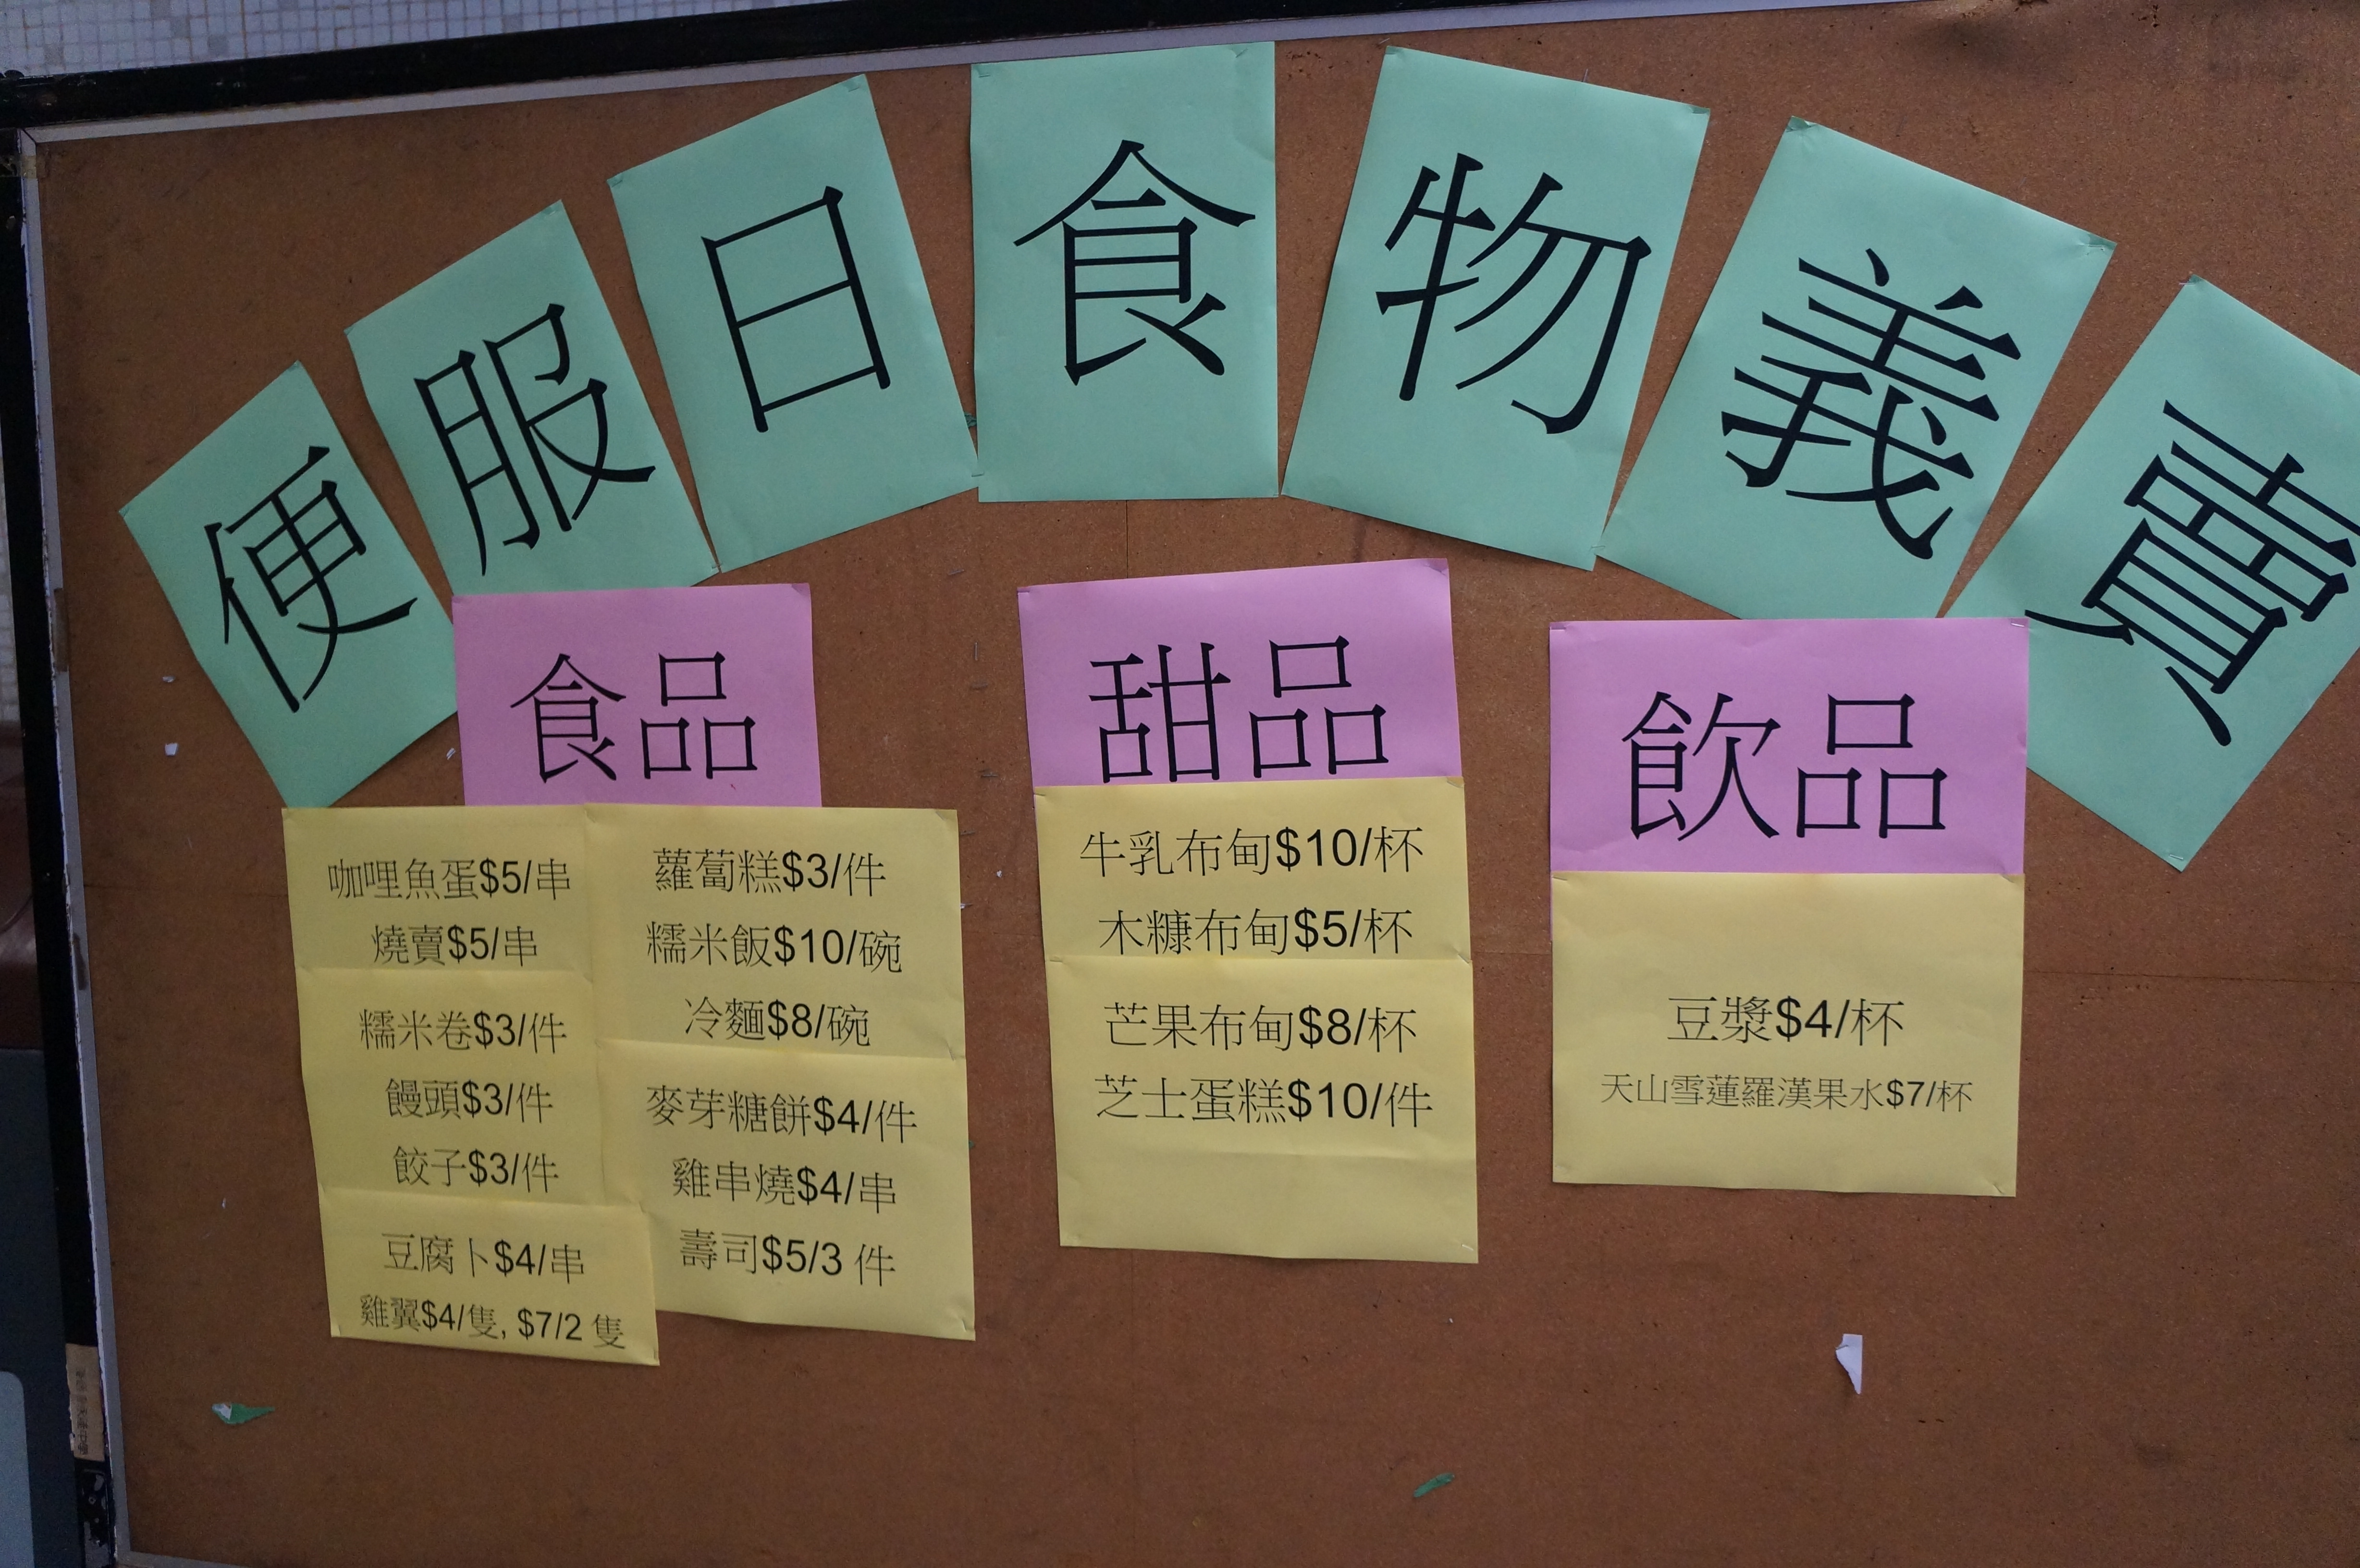 便服日食物義賣
食品
咖哩魚蛋$5/串
燒賣$5/串
糯米卷$3/件
饅頭$3/件
餃子$3/件
豆腐卜$4/串
雞翼$4/隻, $7/2 隻
蘿蔔糕$3/件
糯米飯$10/碗
冷麵$8/碗
麥芽糖餅$4/件
雞串燒$4/串
壽司$5/3 件
甜品
牛乳布甸$10/杯
木糠布甸$5/杯
芒果布甸$8/杯
芝士蛋糕$10/件
飲品
豆漿$4/杯
天山雪蓮羅漢果水$7/杯